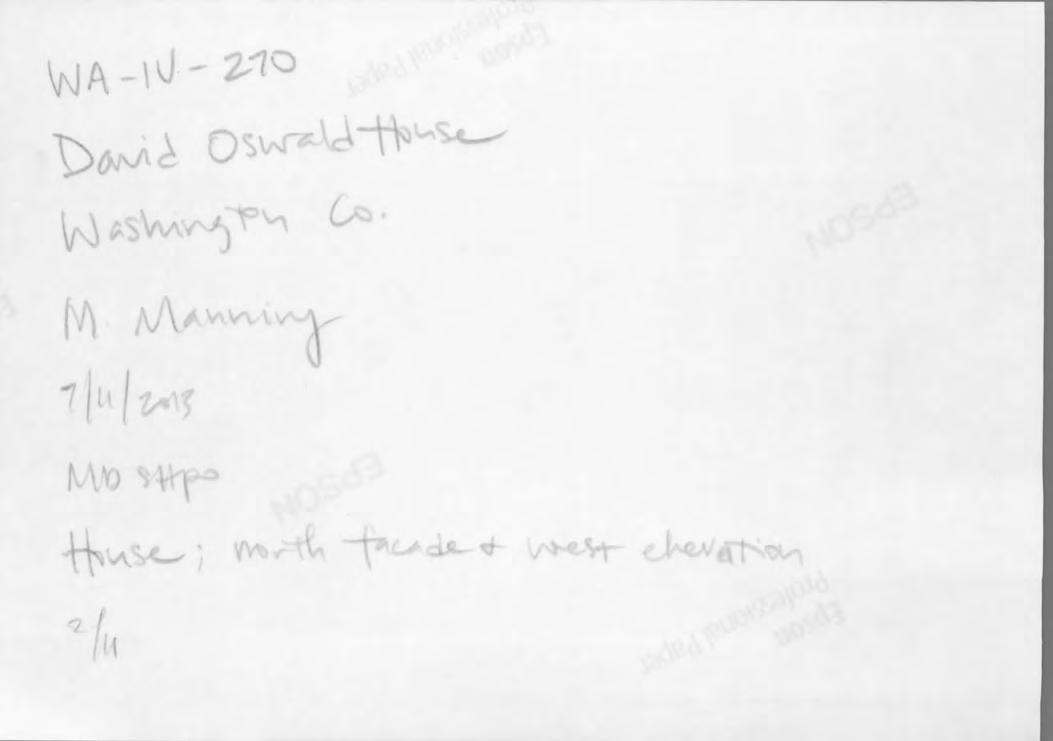 Epson
Professional Paper
WA-IV-270
David Oswald House
Washington Co.
EPSON
M. Manning
7/11/2013
MD SHPO
EPSON
House; north facade + west elevation
Epson
Professional Paper
2/11